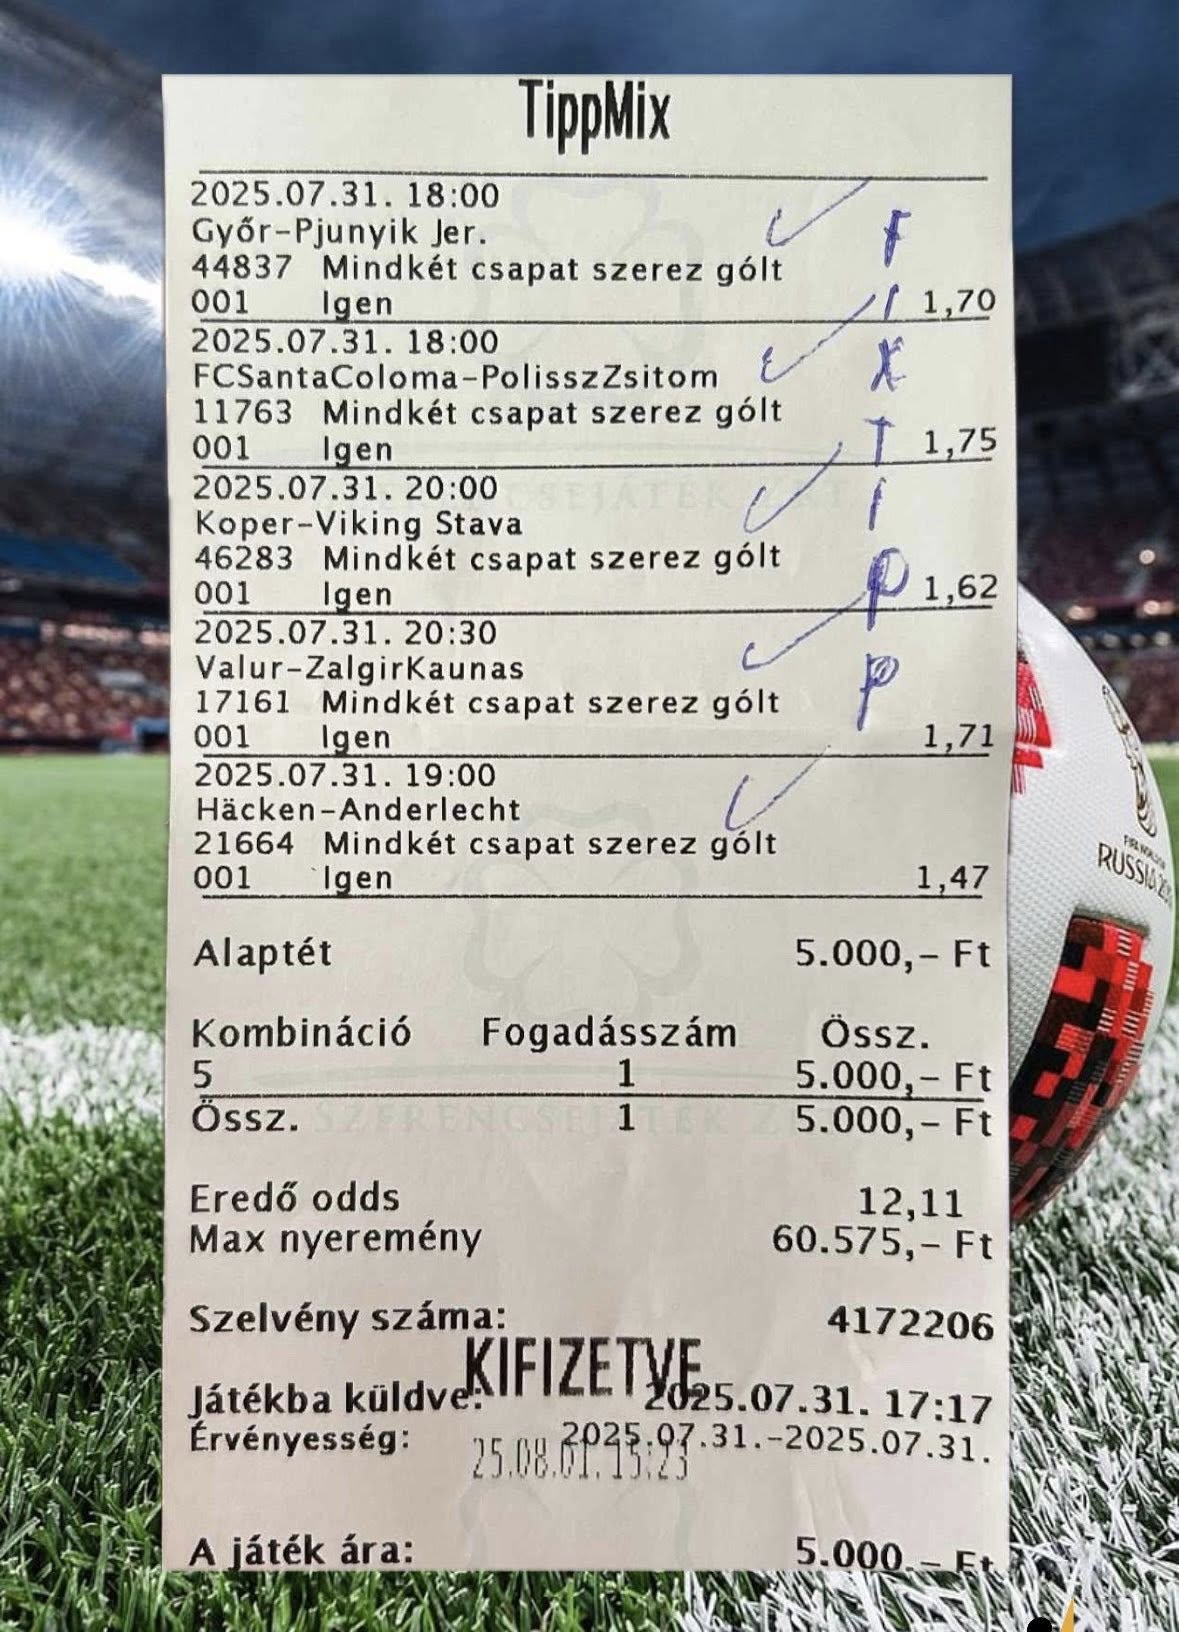 TippMix
2025.07.31. 18:00
Győr-Pjunyik Jer.
44837 Mindkét csapat szerez gólt
001 Igen 1,70
2025.07.31. 18:00
FCSantaColoma-PolisszZsitom
11763 Mindkét csapat szerez gólt
001 Igen 1,75
2025.07.31. 20:00
Koper-Viking Stava
46283 Mindkét csapat szerez gólt
001 Igen 1,62
2025.07.31. 20:30
Valur-ZalgirKaunas
17161 Mindkét csapat szerez gólt
001 Igen 1,71
2025.07.31. 19:00
Häcken-Anderlecht
21664 Mindkét csapat szerez gólt
001 Igen 1,47
F
I
X
T
I
P
P
Alaptét 5.000,- Ft
Kombináció Fogadásszám Össz.
5 1 5.000,- Ft
Össz. 1 5.000,- Ft
SZERENCSEJÁTÉK Z
Eredő odds 12,11
Max nyeremény 60.575,- Ft
Szelvény száma: 4172206
KIFIZETVE
Játékba küldve: 2025.07.31. 17:17
Érvényesség: 2025.07.31.-2025.07.31.
25.08.01. 15:23
A játék ára: 5.000,- Ft
FIFA WORLD CUP
RUSSIA